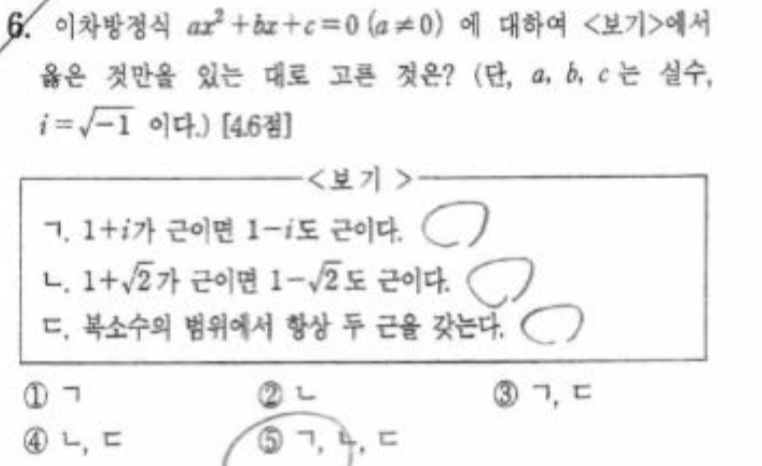 6. 이차방정식 ax²+bx+c=0 (a≠0) 에 대하여 <보기>에서
옳은 것만을 있는 대로 고른 것은? (단, a, b, c는 실수,
i=√-1 이다.) [4.6점]
<보 기>
ㄱ. 1+i가 근이면 1-i도 근이다.
ㄴ. 1+√2가 근이면 1-√2도 근이다.
ㄷ. 복소수의 범위에서 항상 두 근을 갖는다.
① ㄱ ② ㄴ ③ ㄱ, ㄷ
④ ㄴ, ㄷ ⑤ ㄱ, ㄴ, ㄷ